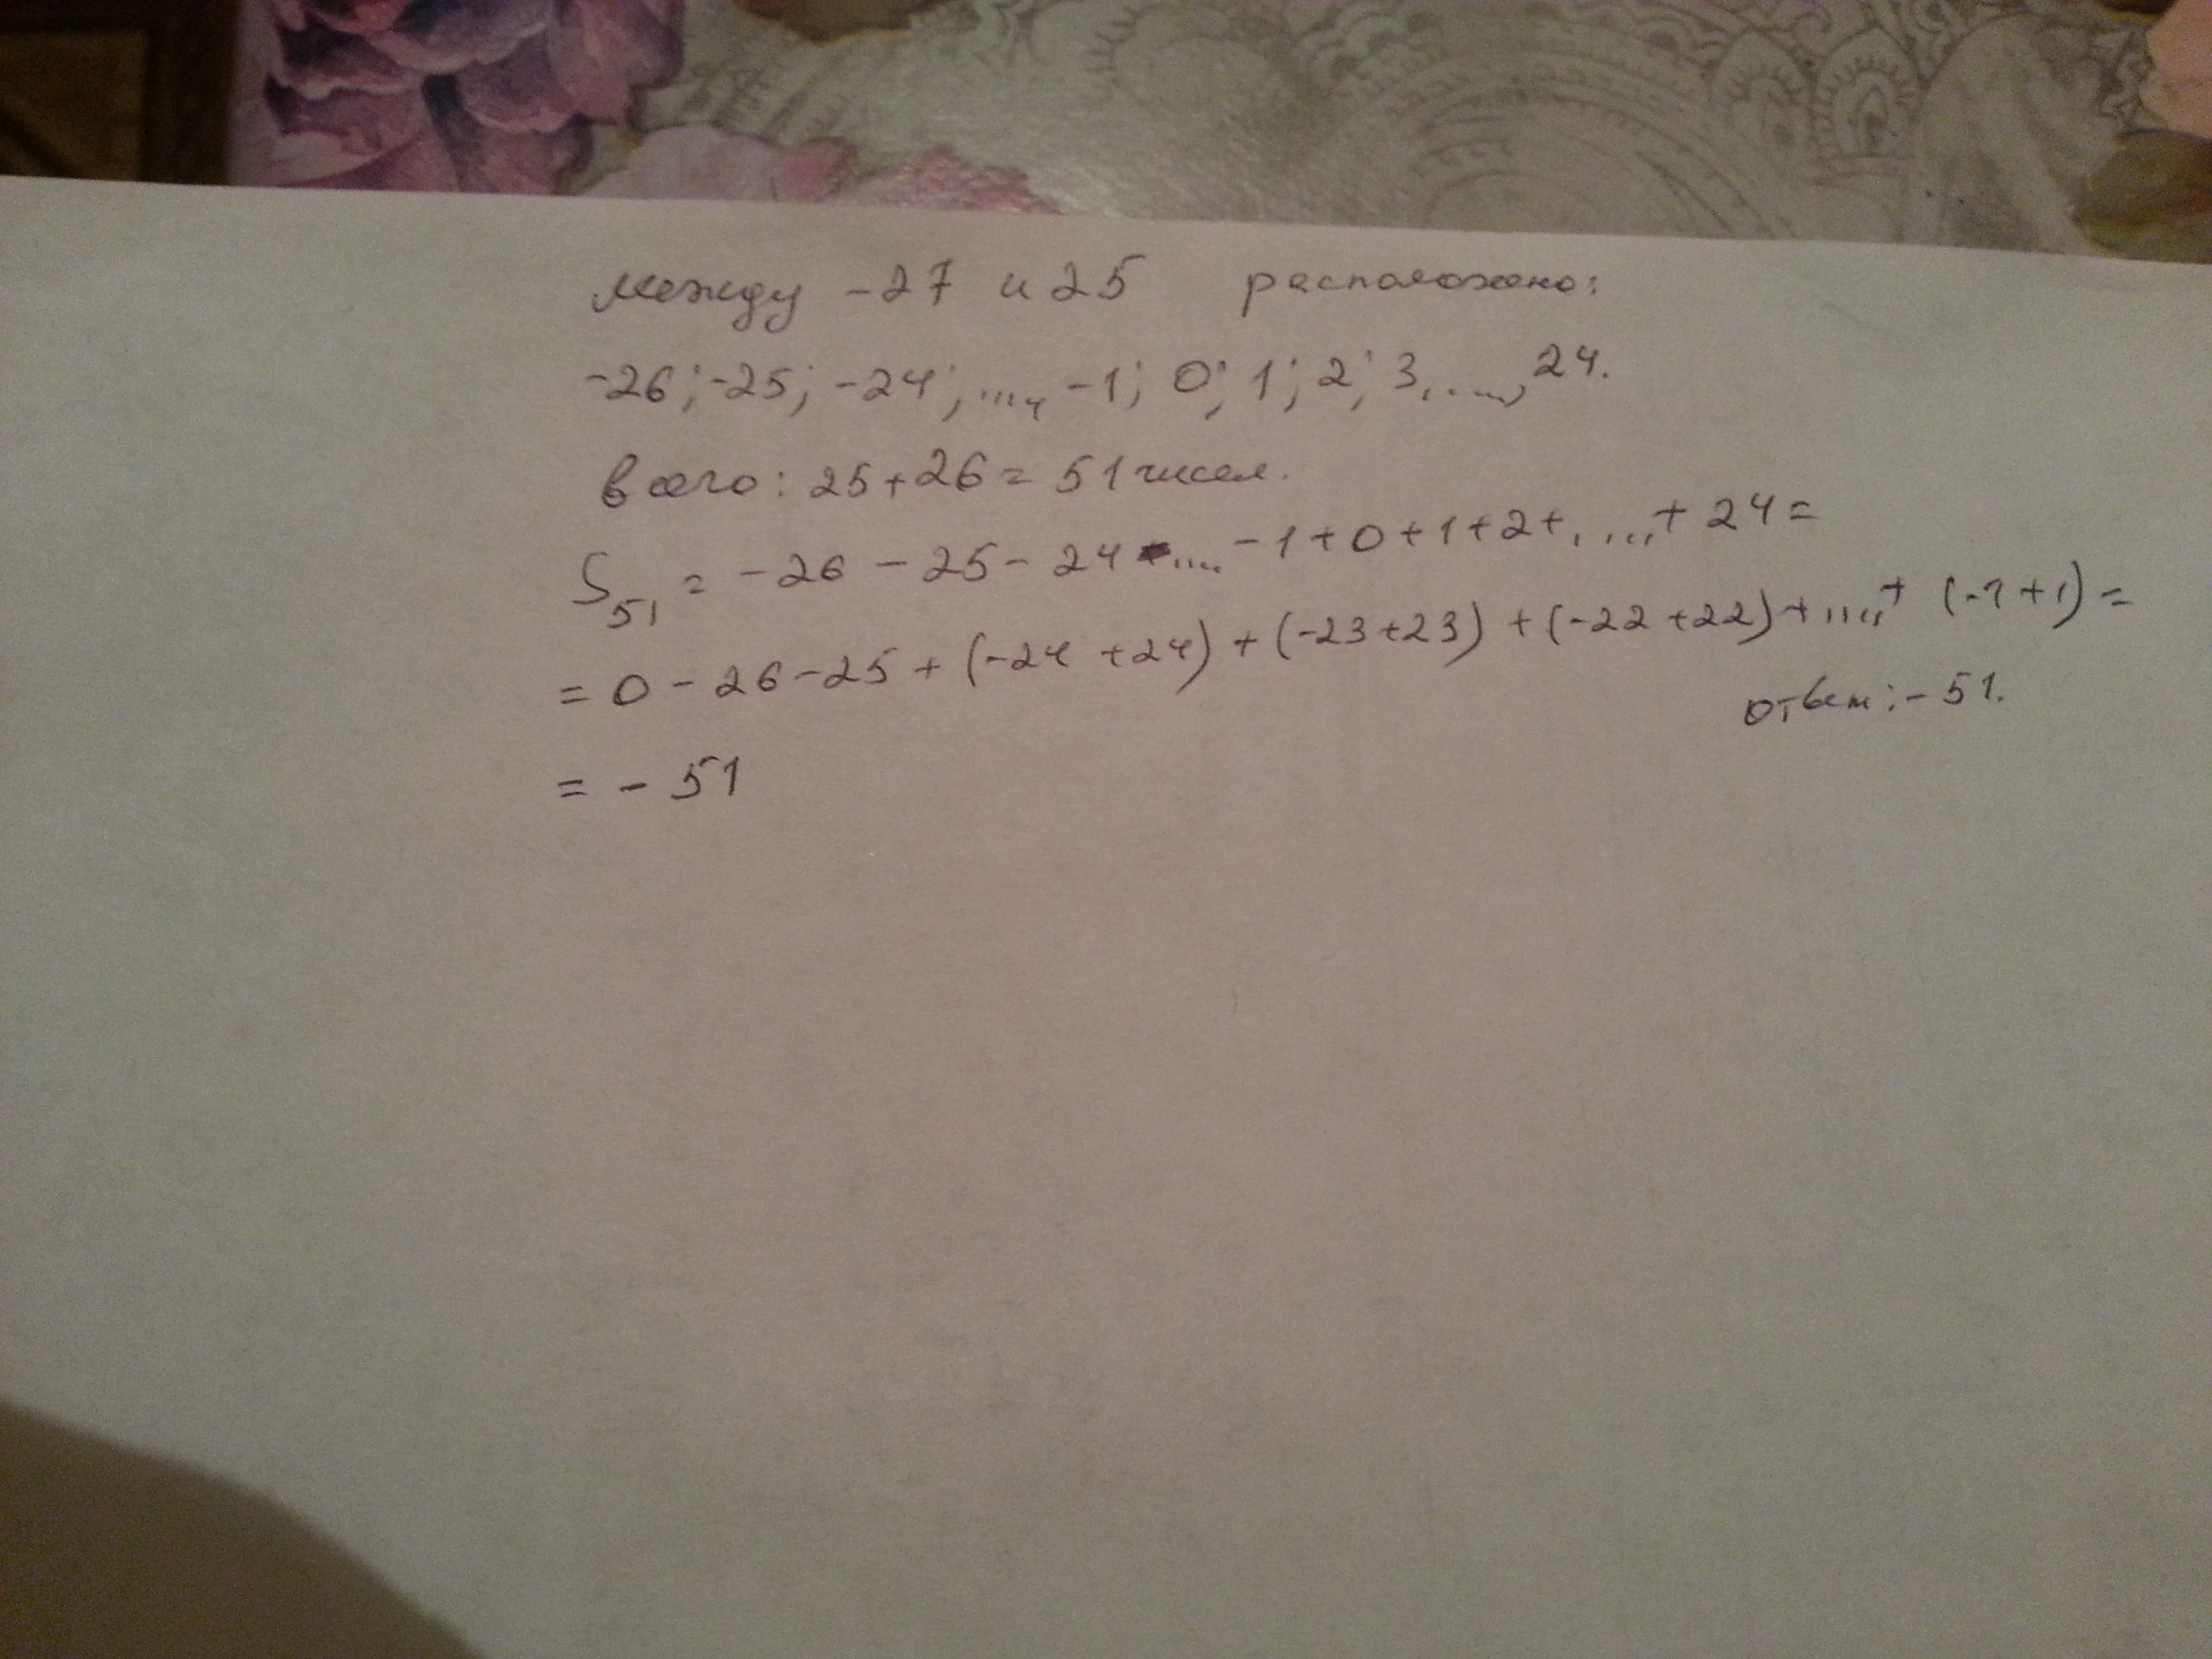 между -27 и 25 расположено:
-26; -25; -24; ...., -1; 0; 1; 2; 3, ...., 24.
всего: 25+26=51 чисел.
S51 = -26 -25 -24 .... -1+0+1+2+, ....+ 24=
= 0 -26-25+(-24+24)+(-23+23)+(-22+22)+....+(-1+1)=
= -51
ответ: -51.